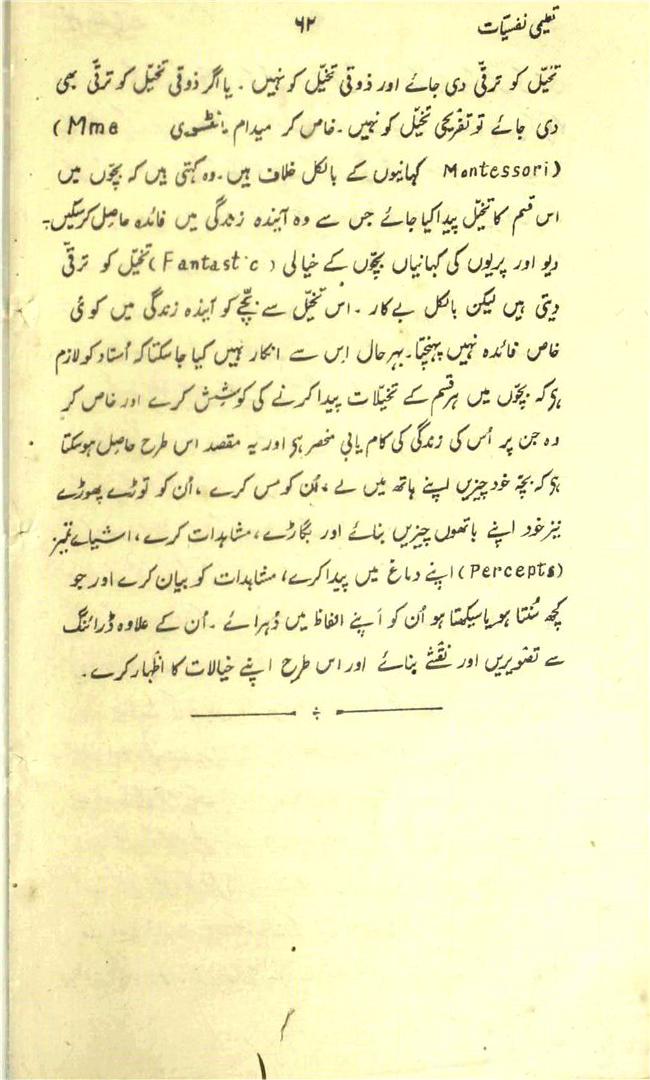 تعلیمی نفسیات ۶۲
تخیّل کو ترقّی دی جائے اور ذوقی تخیّل کو نہیں ۔ یا اگر ذوقی تخیّل کو ترقّی بھی
دی جائے تو تفریحی تخیّل کو نہیں ۔ خاص کر میدام مانٹسوری (Mme
Montessori) کہانیوں کے بالکل خلاف ہیں ۔ وہ کہتی ہیں کہ بچّوں میں
اس قسم کا تخیّل پیدا کیا جائے جس سے وہ آیندہ زندگی میں فائدہ حاصل کر سکیں ۔
دیو اور پریوں کی کہانیاں بچّوں کے خیالی (Fantastic) تخیّل کو ترقّی
دیتی ہیں لیکن بالکل بے کار ۔ اس تخیّل سے بچّے کو آیندہ زندگی میں کوئی
خاص فائدہ نہیں پہنچتا ۔ بہرحال اِس سے انکار نہیں کیا جا سکتا کہ اُستاد کو لازم
ہی کہ بچّوں میں ہر قسم کے تخیّلات پیدا کرنے کی کوشش کرے اور خاص کر
وہ جن پر اُس کی زندگی کی کام یابی منحصر ہی اور یہ مقصد اس طرح حاصل ہو سکتا
ہی کہ بچّہ خود چیزیں اپنے ہاتھ میں لے ، اُن کو مس کرے ، اُن کو توڑے پھوڑے
نیز خود اپنے ہاتھوں چیزیں بنائے اور بگاڑے ، مشاہدات کرے ، اشیائے تمیز
(Percepts) اپنے دماغ میں پیدا کرے ، مشاہدات کو بیان کرے اور جو
کچھ سُنتا ہو یا سیکھتا ہو اُن کو اَپنے الفاظ میں دُہرائے ۔ اُن کے علاوہ ڈرائنگ
سے تصویریں اور نقشے بنائے اور اس طرح اپنے خیالات کا اظہار کرے ۔